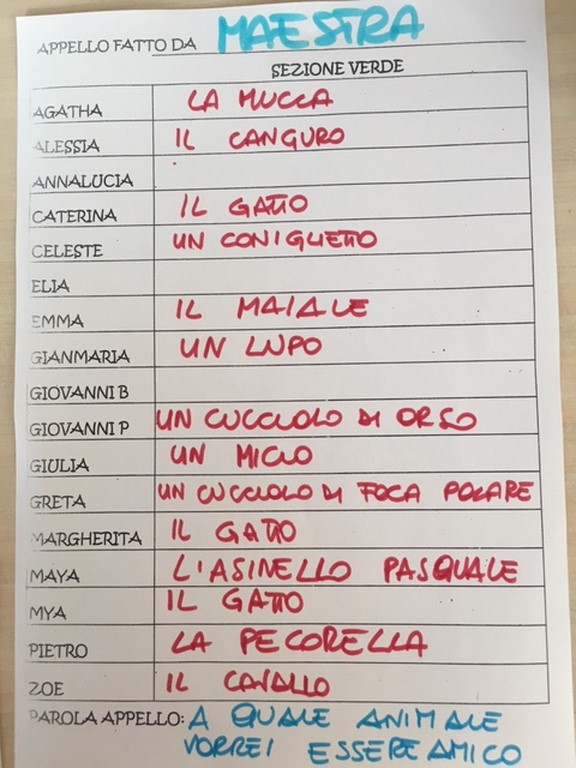 APPELLO FATTO DA MAESTRA
SEZIONE VERDE
AGATHA LA MUCCA
ALESSIA IL CANGURO
ANNALUCIA
CATERINA IL GATTO
CELESTE UN CONIGLIETTO
ELIA
EMMA IL MAIALE
GIANMARIA UN LUPO
GIOVANNI B
GIOVANNI P UN CUCCIOLO DI ORSO
GIULIA UN MICIO
GRETA UN CUCCIOLO DI FOCA POLARE
MARGHERITA IL GATTO
MAYA L'ASINELLO PASQUALE
MYA IL GATTO
PIETRO LA PECORELLA
ZOE IL CAVALLO
PAROLA APPELLO: A QUALE ANIMALE
VORREI ESSERE AMICO